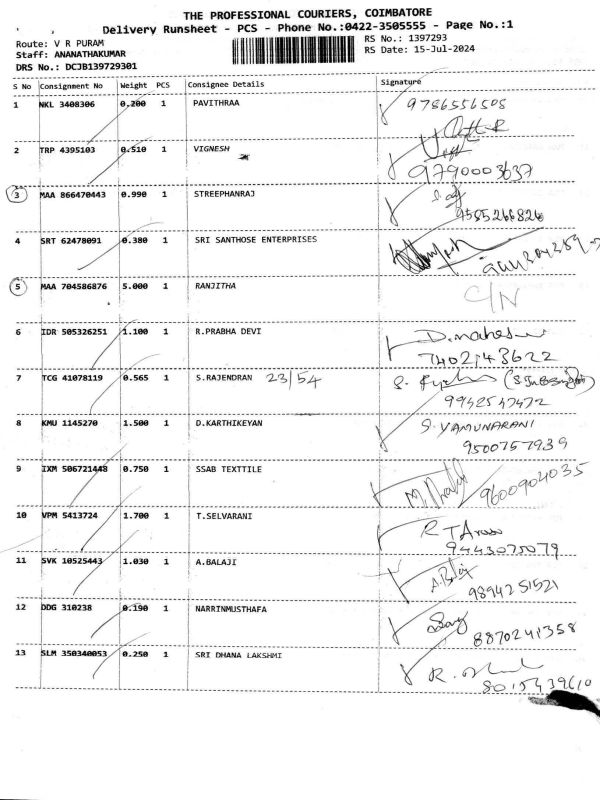 THE PROFESSIONAL COURIERS, COIMBATORE
Delivery Runsheet - PCS - Phone No.:0422-3505555 - Page No.:1
Route: V R PURAM
RS No.: 1397293
Staff: ANANATHAKUMAR
RS Date: 15-Jul-2024
DRS No.: DCJB139729301
S No Consignment No Weight PCS Consignee Details Signature
1 NKL 3408306 0.200 1 PAVITHRAA 9786556508
2 TRP 4395103 0.510 1 VIGNESH
9790003637
3 MAA 866470443 0.990 1 STREEPHANRAJ
9585266826
4 SRT 62478091 0.380 1 SRI SANTHOSE ENTERPRISES
5 MAA 704586876 5.000 1 RANJITHA C/N
6 IDR 505326251 1.100 1 R.PRABHA DEVI
7402143622
7 TCG 41078119 0.565 1 S.RAJENDRAN 23/54
9942547472
8 KMU 1145270 1.500 1 D.KARTHIKEYAN S. YAMUNARANI
9500757939
9 IXM 506721448 0.750 1 SSAB TEXTTILE
9600904035
10 VPM 5413724 1.700 1 T.SELVARANI
9443075079
11 SVK 10525443 1.030 1 A.BALAJI
9894251521
12 DDG 310238 0.190 1 NARRINMUSTHAFA
8870241358
13 SLM 350340053 0.250 1 SRI DHANA LAKSHMI
8015439610